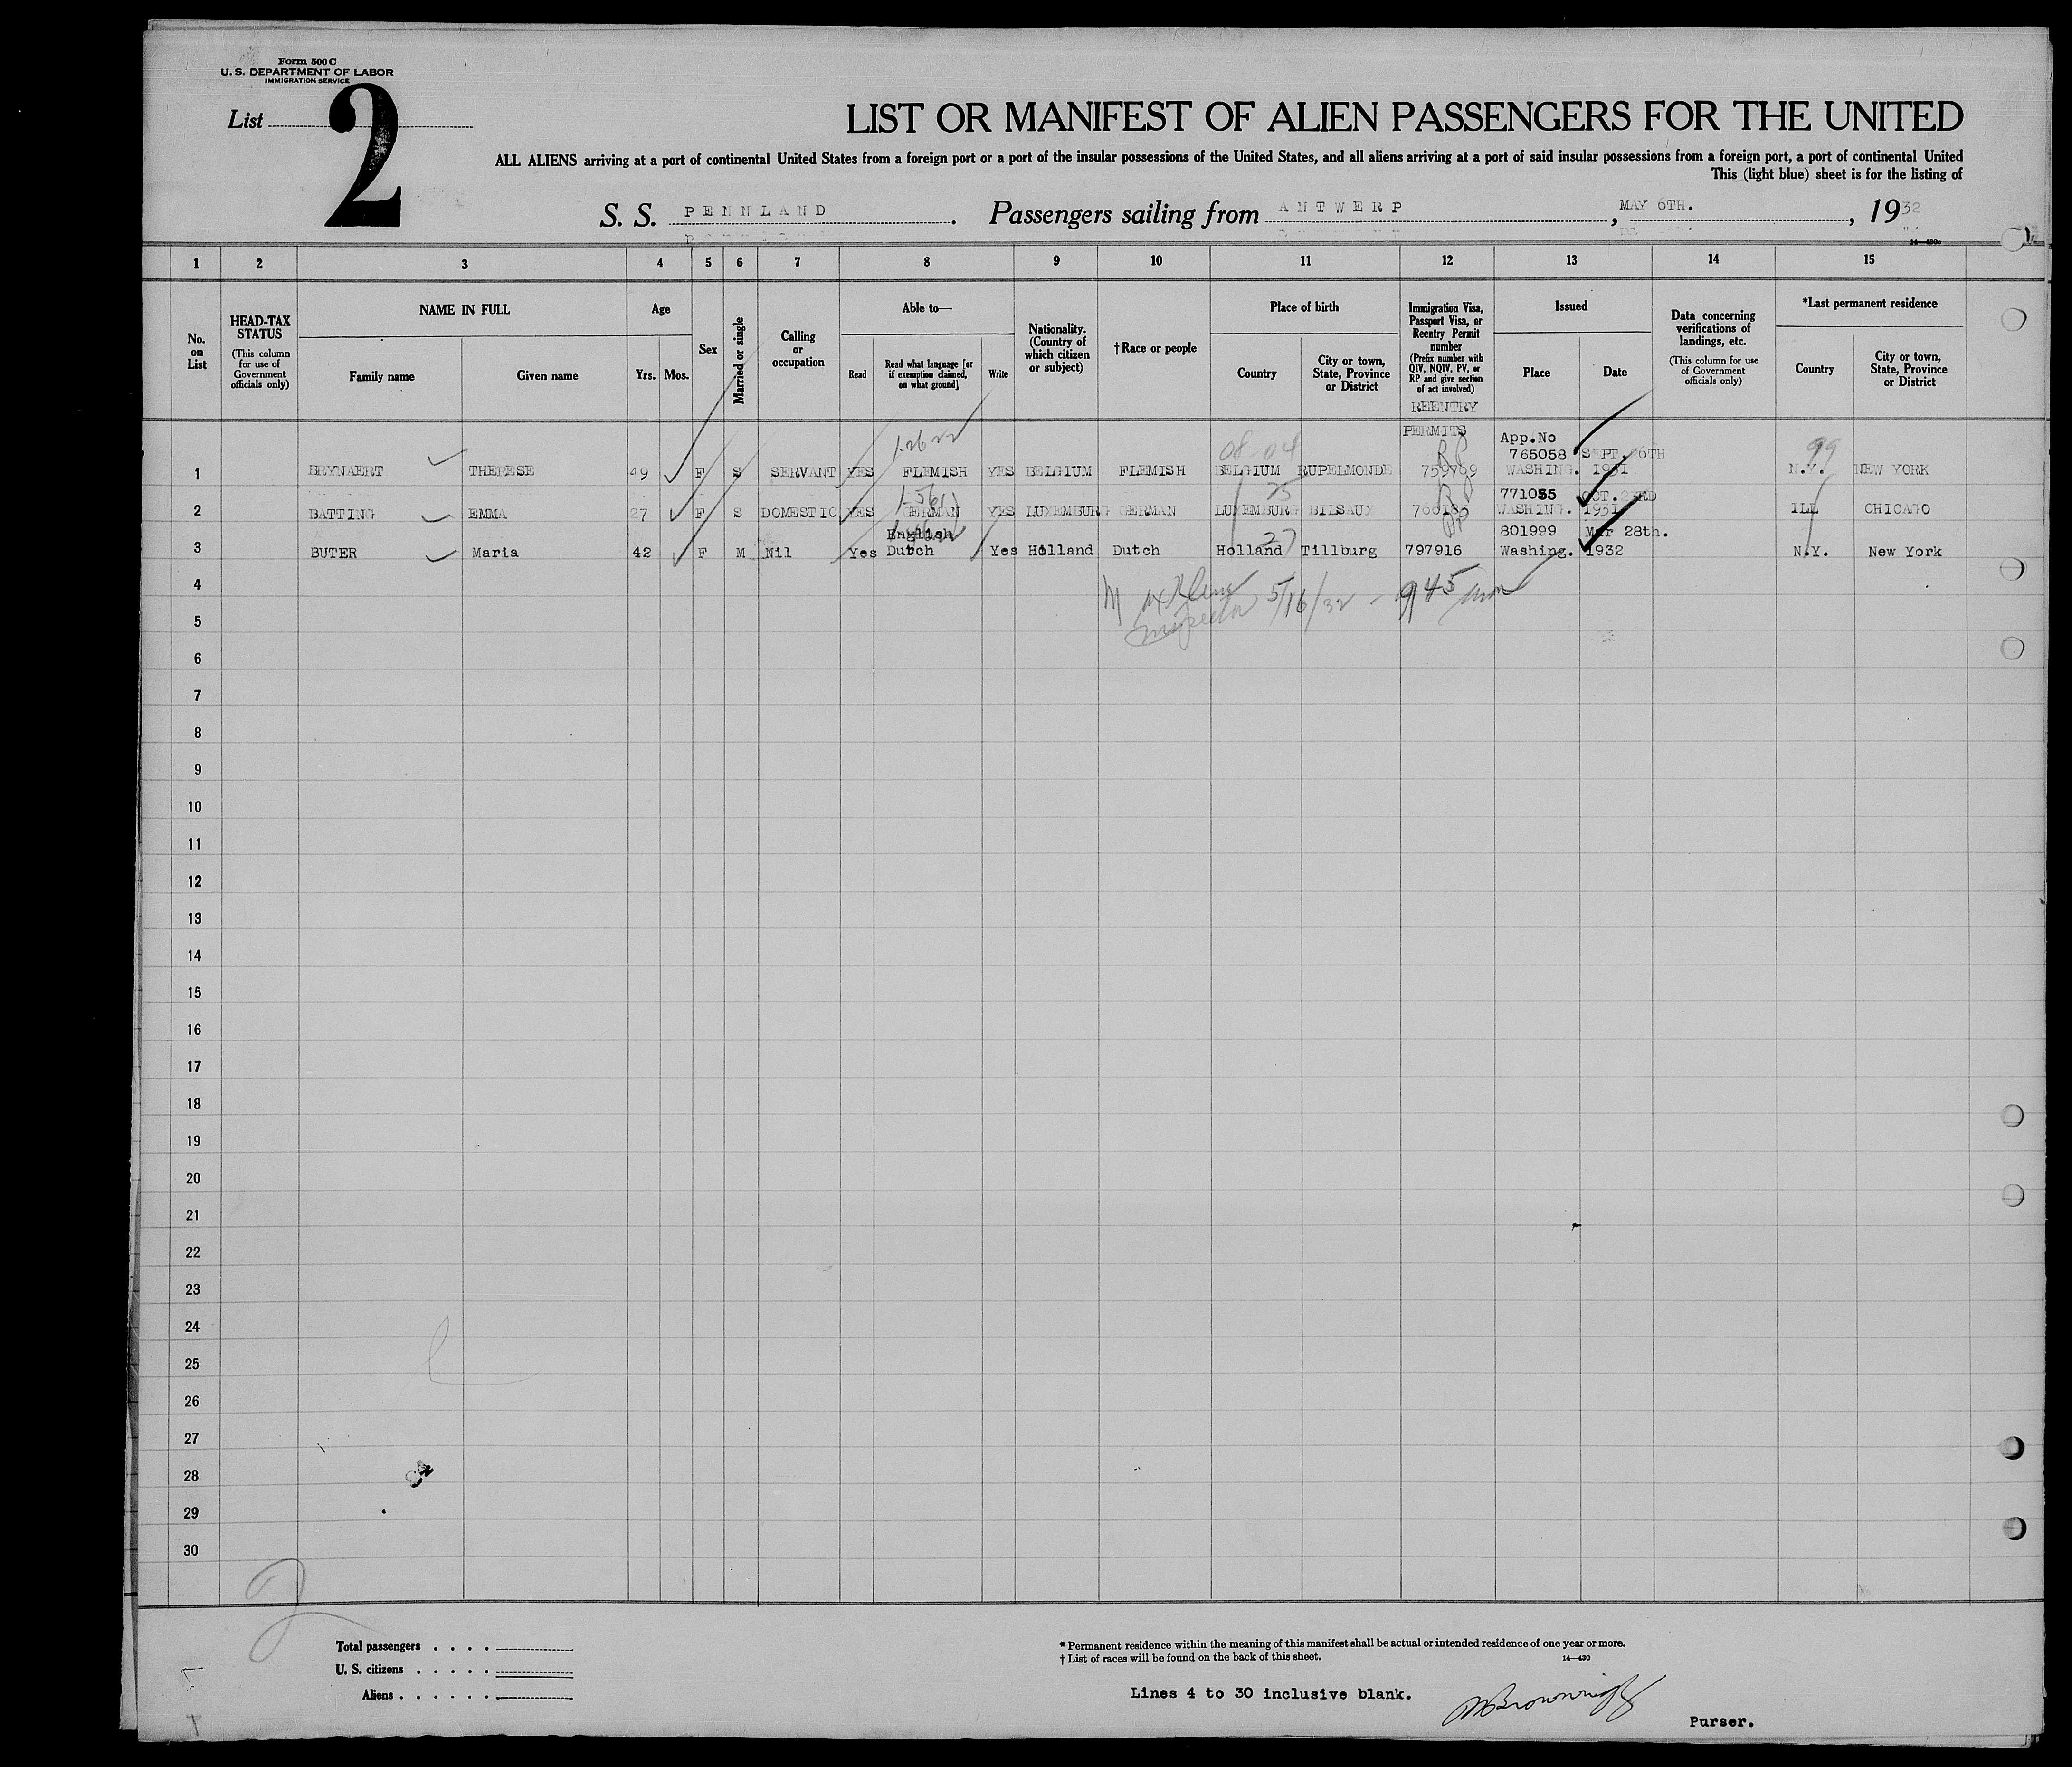 Form 500 C
U. S. DEPARTMENT OF LABOR
IMMIGRATION SERVICE
List 2
LIST OR MANIFEST OF ALIEN PASSENGERS FOR THE UNITED
ALL ALIENS arriving at a port of continental United States from a foreign port or a port of the insular possessions of the United States, and all aliens arriving at a port of said insular possessions from a foreign port, a port of continental United
This (light blue) sheet is for the listing of
S. S. PENNLAND. Passengers sailing from ANTWERP, MAY 6TH., 1932
1 2 3 4 5 6 7 8 9 10 11 12 13 14 15
No. on List
HEAD-TAX STATUS
(This column for use of Government officials only)
NAME IN FULL
Family name Given name
Age
Yrs. Mos.
Sex
Married or single
Calling or occupation
Able to—
Read Read what language [or if exemption claimed, on what ground] Write
Nationality. (Country of which citizen or subject)
† Race or people
Place of birth
Country City or town, State, Province or District
Immigration Visa, Passport Visa, or Reentry Permit number
(Prefix number with QIV, NQIV, PV, or RP and give section of act involved)
REENTRY
PERMITS
Issued
Place Date
Data concerning verifications of landings, etc.
(This column for use of Government officials only)
*Last permanent residence
Country City or town, State, Province or District
08-04 RP App.No 99
765058 SEPT. 26TH
1 THERESE 49 F S SERVANT YES FLEMISH YES BELGIUM FLEMISH BELGIUM RUPELMONDE 759769 WASHING. 1931 N.Y. NEW YORK
25 RP 771085 OCT. 23RD
2 BATTING EMMA 27 F S DOMESTIC YES GERMAN YES LUXEMBURG GERMAN LUXEMBURG WASHING. 1931 ILL CHICAGO
English 27 RP 801999 Mar 28th.
3 BUTER Maria 42 F M Nil Yes Dutch Yes Holland Dutch Holland Tillburg 797916 Washing. 1932 N.Y. New York
4
5/16/32 - 945 am
5
Inspector
6
7
8
9
10
11
12
13
14
15
16
17
18
19
20
21
22
23
24
25
26
27
28
29
30
2
Total passengers
U. S. citizens
Aliens
* Permanent residence within the meaning of this manifest shall be actual or intended residence of one year or more.
† List of races will be found on the back of this sheet.
14—430
Lines 4 to 30 inclusive blank.
Purser.